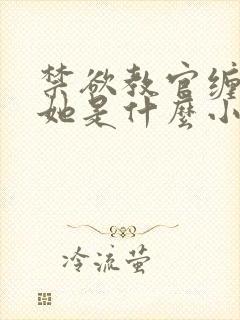 禁欲教官缠
她是什麼小
冷流萤